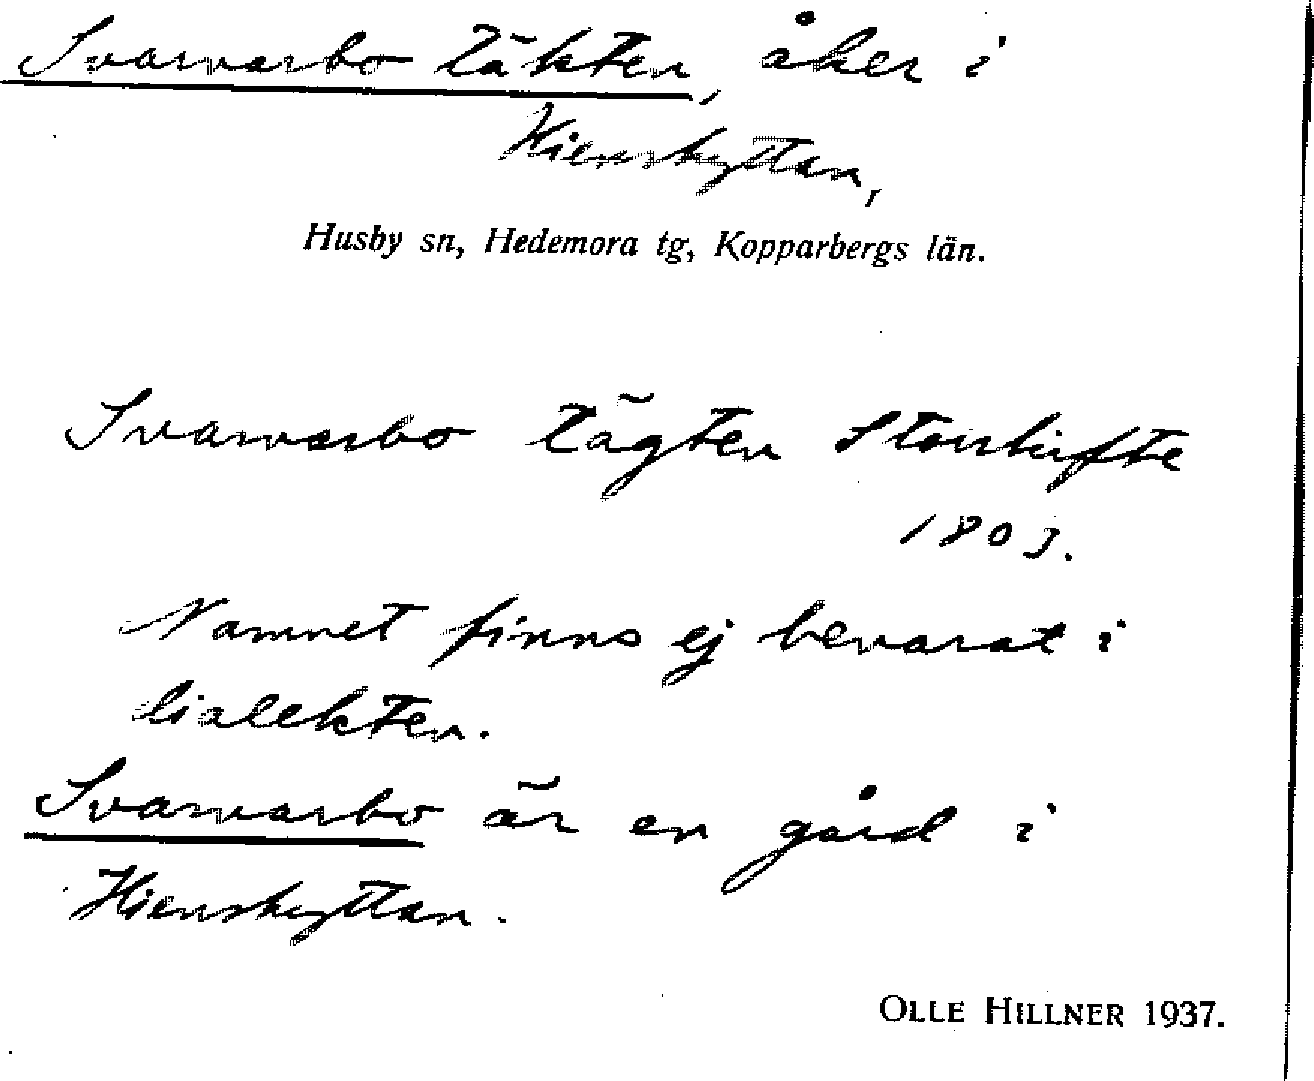 Svarvarbo täkten, åker i
Hienshyttan,
Husby sn, Hedemora tg, Kopparbergs län.
Svarvarbo tägten Storskifte
1803.
Namnet finns ej bevarat i
dialekten.
Svarvarbo är en gård i
Hienshyttan.
OLLE HILLNER 1937.